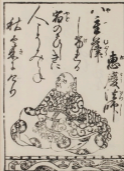 惠慶法師
八重葎
しけれる
宿のさひしきに
人こそみえね
秋は来にけり